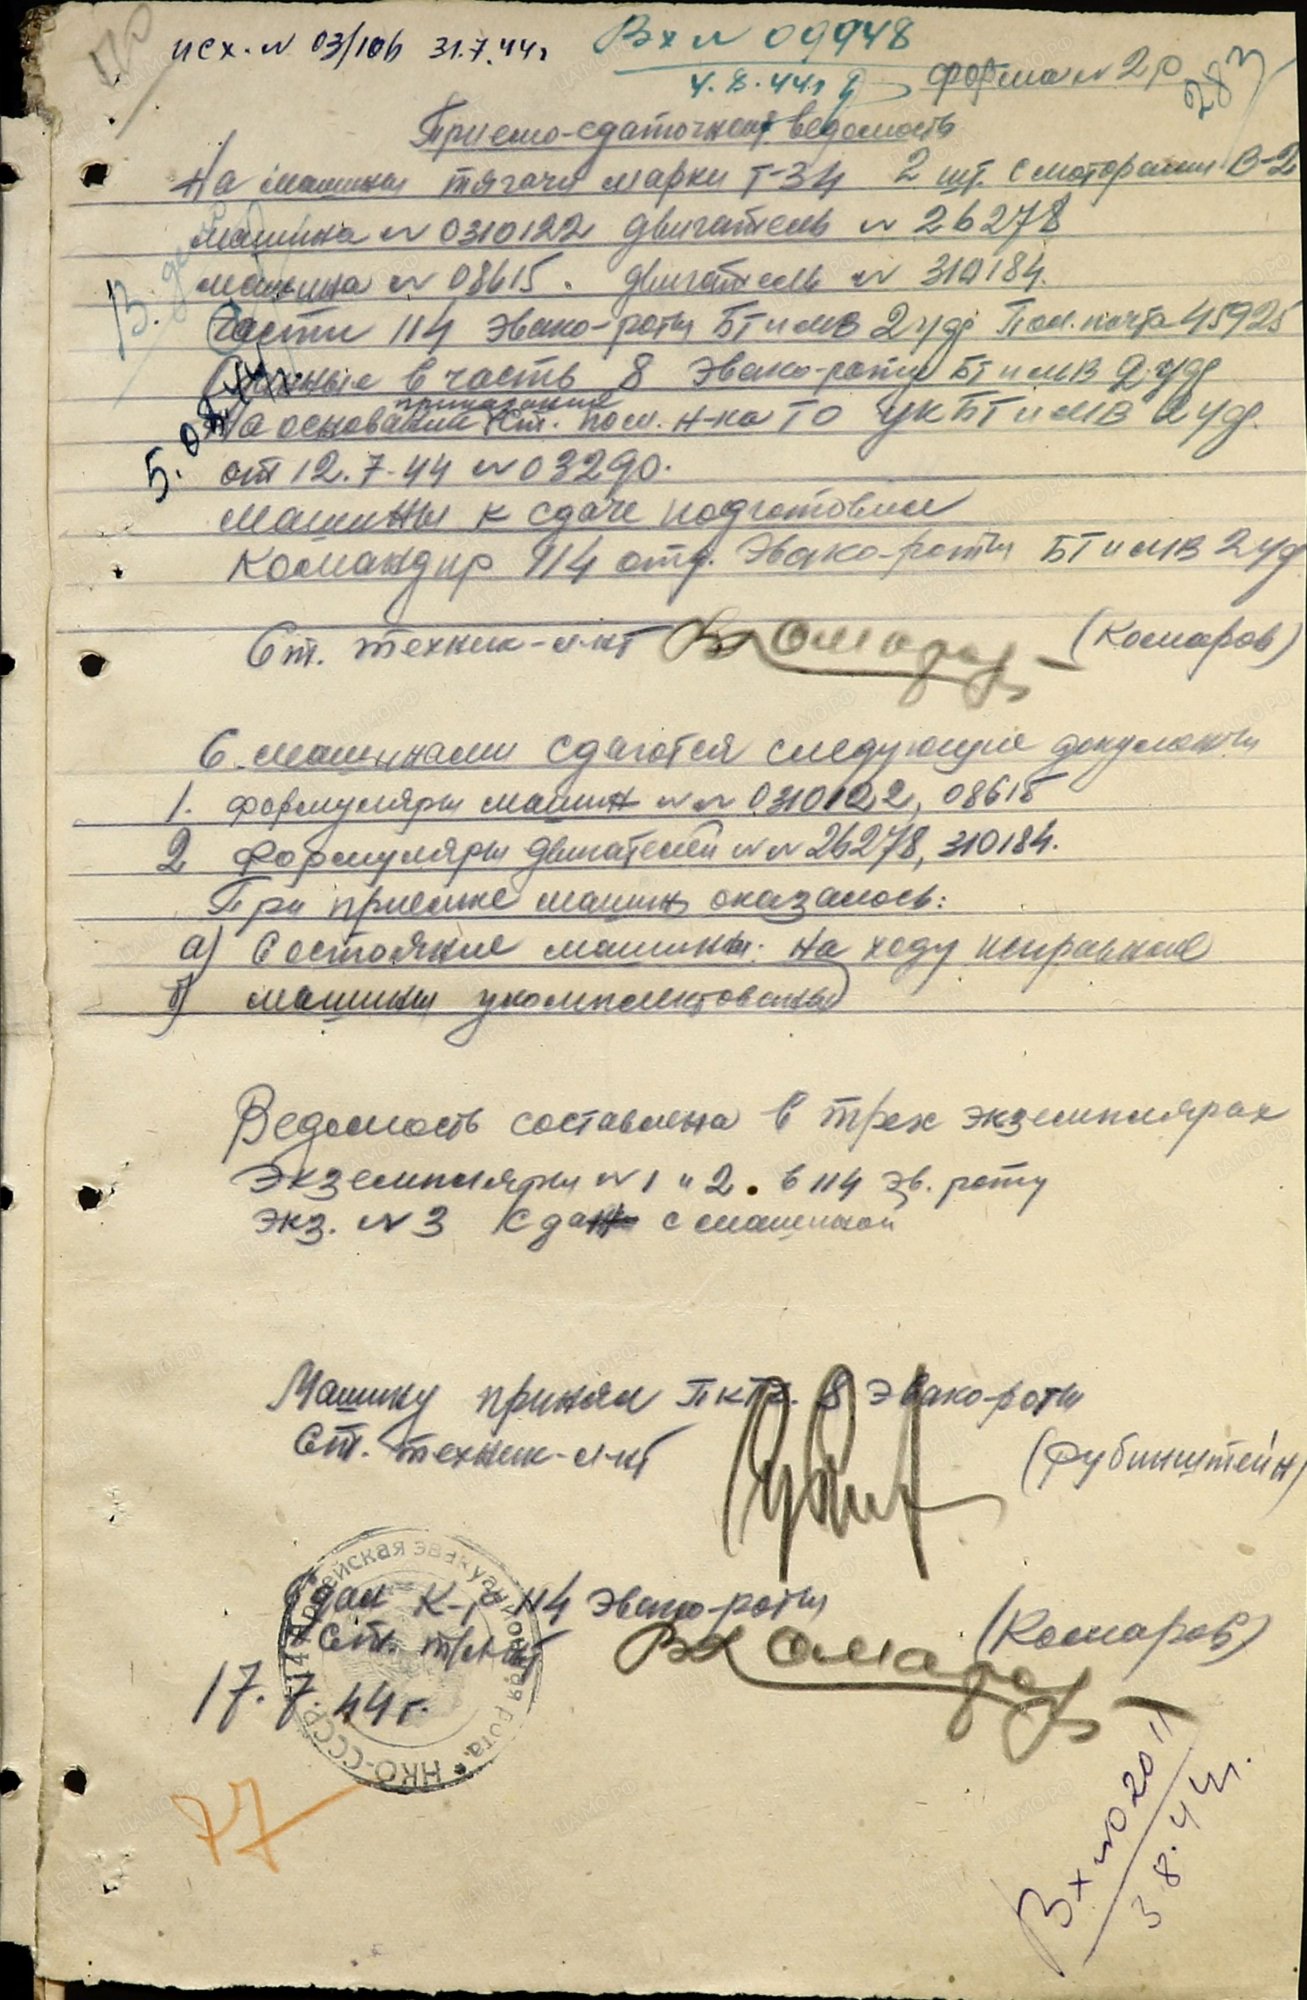 исх. № 03/106 31.7.44г
Вх № 09948
4.8.44г
форма № 2р
283
Приемо-сдаточная ведомость
На машины тягачи марки Т-34 2 шт. с моторами В-2
машина № 0310122 двигатель № 26278
машина № 08615. двигатель № 310184.
Части 114 Эвако-роты БТ и МВ 2 удр Пол. почта 45925
Сданные в часть 8 Эвако-роты БТ и МВ 2 удр
приказания
На основании Ст. пом. н-ка ТО УК БТ и МВ 2 удр.
от 12.7.44 № 03290.
5.08.44
Машины к сдаче подготовил
Командир 114 отд. Эвако-роты БТ и МВ 2 удр
Ст. техник-л-нт (Комаров)
С машинами сдаются следующие документы
1. формуляры машин №№ 0310122, 08615
2 Формуляры двигателей №№ 26278, 310184.
При приемке машин оказалось:
а) Состояние машины: на ходу исправные
б) машины укомплектованы
Ведомость составлена в трех экземплярах
Экземпляры № 1 и 2. в 114 эв. роту
экз. № 3 с машиной
Машину принял 8 Эвако-роты
Ст. техник-л-нт (Рубинштейн)
Сдал К-р 114 Эвако-роты
Ст. т-л-нт (Комаров)
17.7.44г.
114 Армейская эвакуационная рота НКО-СССР
77
Вх № 02011
3.8.44г.